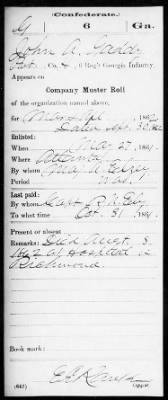 (Confederate.)
G 6 Ga.
John A. Gaddy
Pvt., Co. G, 6 Reg't Georgia Infantry.
Appears on
Company Muster Roll
of the organization named above,
for Mar & Apl, 186
dated Apr. 30, 1862
Enlisted:
When May 27, 1861.
Where Atlanta
By whom Maj
Period War
Last paid:
By whom Capt
To what time Oct. 31, 1861.
Present or absent
Remarks: Died Augt. 3,
1862 at Hospital in
Richmond
Book mark:
(642) Copyist.